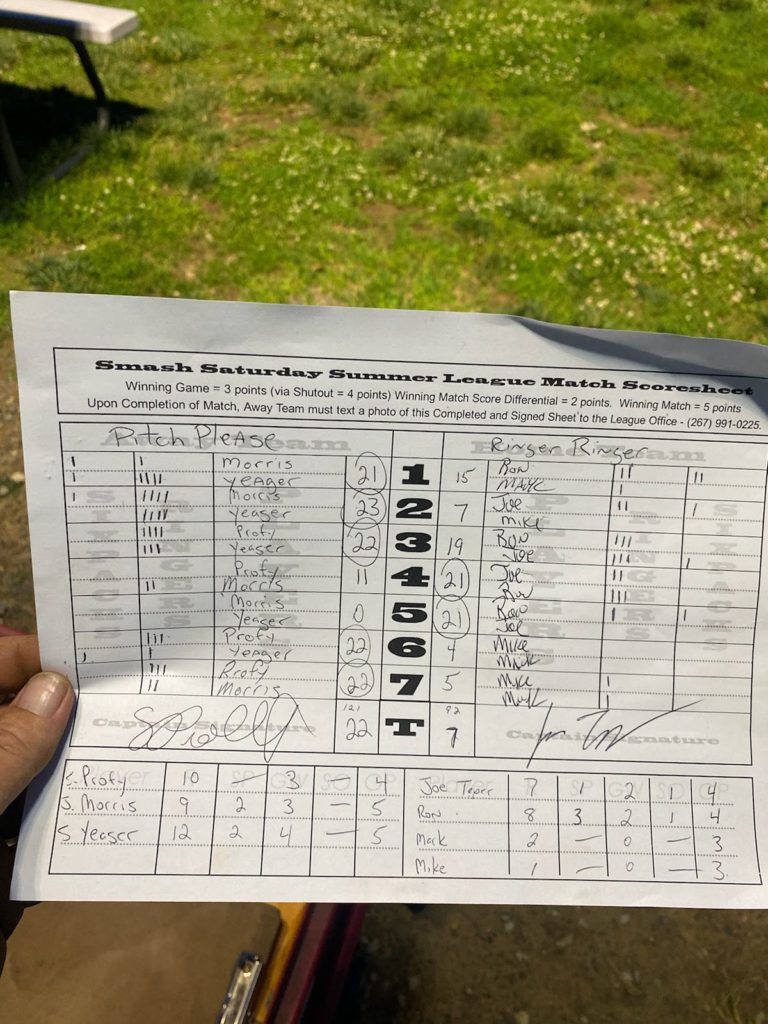 Smash Saturday Summer League Match Scoresheet
Winning Game = 3 points (via Shutout = 4 points) Winning Match Score Differential = 2 points. Winning Match = 5 points
Upon Completion of Match, Away Team must text a photo of this Completed and Signed Sheet to the League Office - (267) 991-0225.
Pitch Please Ringer Ringer
Morris 21 1 15 Ron
Yeager Mark
Morris 23 2 7 Joe
Yeager Mike
Profy 22 3 19 Ron
Yeager Joe
Profy 11 4 21 Joe
Morris Ron
Morris 0 5 21 Ron
Yeager Joe
Profy 22 6 4 Mike
Yeager Mark
Profy 22 7 5 Mike
Morris Mark
121 92
Captain Signature 22 T 7 Captain Signature
S. Profy 10 — 3 — 4 Joe Teper 7 1 2 1 4
J. Morris 9 2 3 — 5 Ron 8 3 2 1 4
S Yeager 12 2 4 — 5 Mark 2 — 0 — 3
Mike 1 — 0 — 3